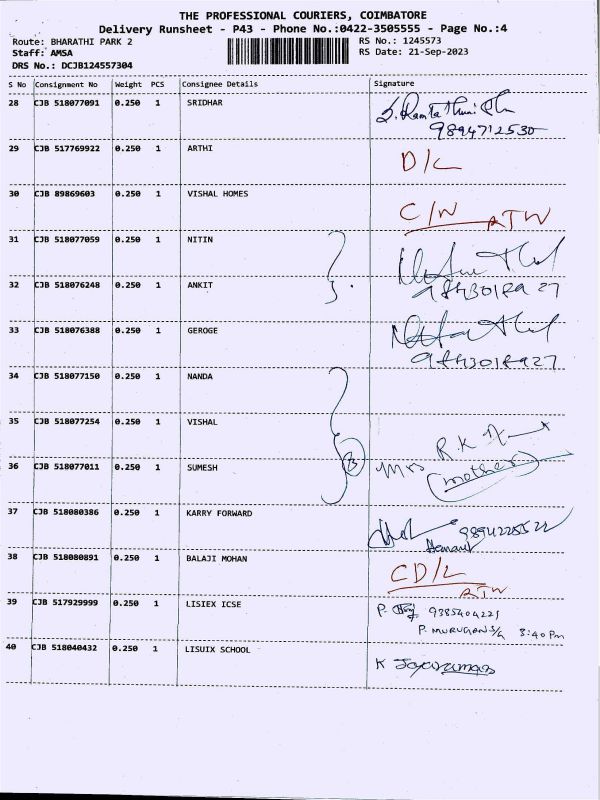 THE PROFESSIONAL COURIERS, COIMBATORE
Delivery Runsheet - P43 - Phone No.:0422-3505555 - Page No.:4
Route: BHARATHI PARK 2 RS No.: 1245573
Staff: AMSA RS Date: 21-Sep-2023
DRS No.: DCJB124557304
S No Consignment No Weight PCS Consignee Details Signature
28 CJB 518077091 0.250 1 SRIDHAR
9894712530
29 CJB 517769922 0.250 1 ARTHI D/L
30 CJB 89869603 0.250 1 VISHAL HOMES C/N RTW
31 CJB 518077059 0.250 1 NITIN
32 CJB 518076248 0.250 1 ANKIT
33 CJB 518076388 0.250 1 GEROGE
34 CJB 518077150 0.250 1 NANDA
35 CJB 518077254 0.250 1 VISHAL R.K
36 CJB 518077011 0.250 1 SUMESH Mrs (mother)
37 CJB 518080386 0.250 1 KARRY FORWARD
38 CJB 518080891 0.250 1 BALAJI MOHAN CD/L
RTW
39 CJB 517929999 0.250 1 LISIEX ICSE P. 9385404221
P. MURUGAN S/G 3:40 Pm
40 CJB 518040432 0.250 1 LISUIX SCHOOL K Jayakumar